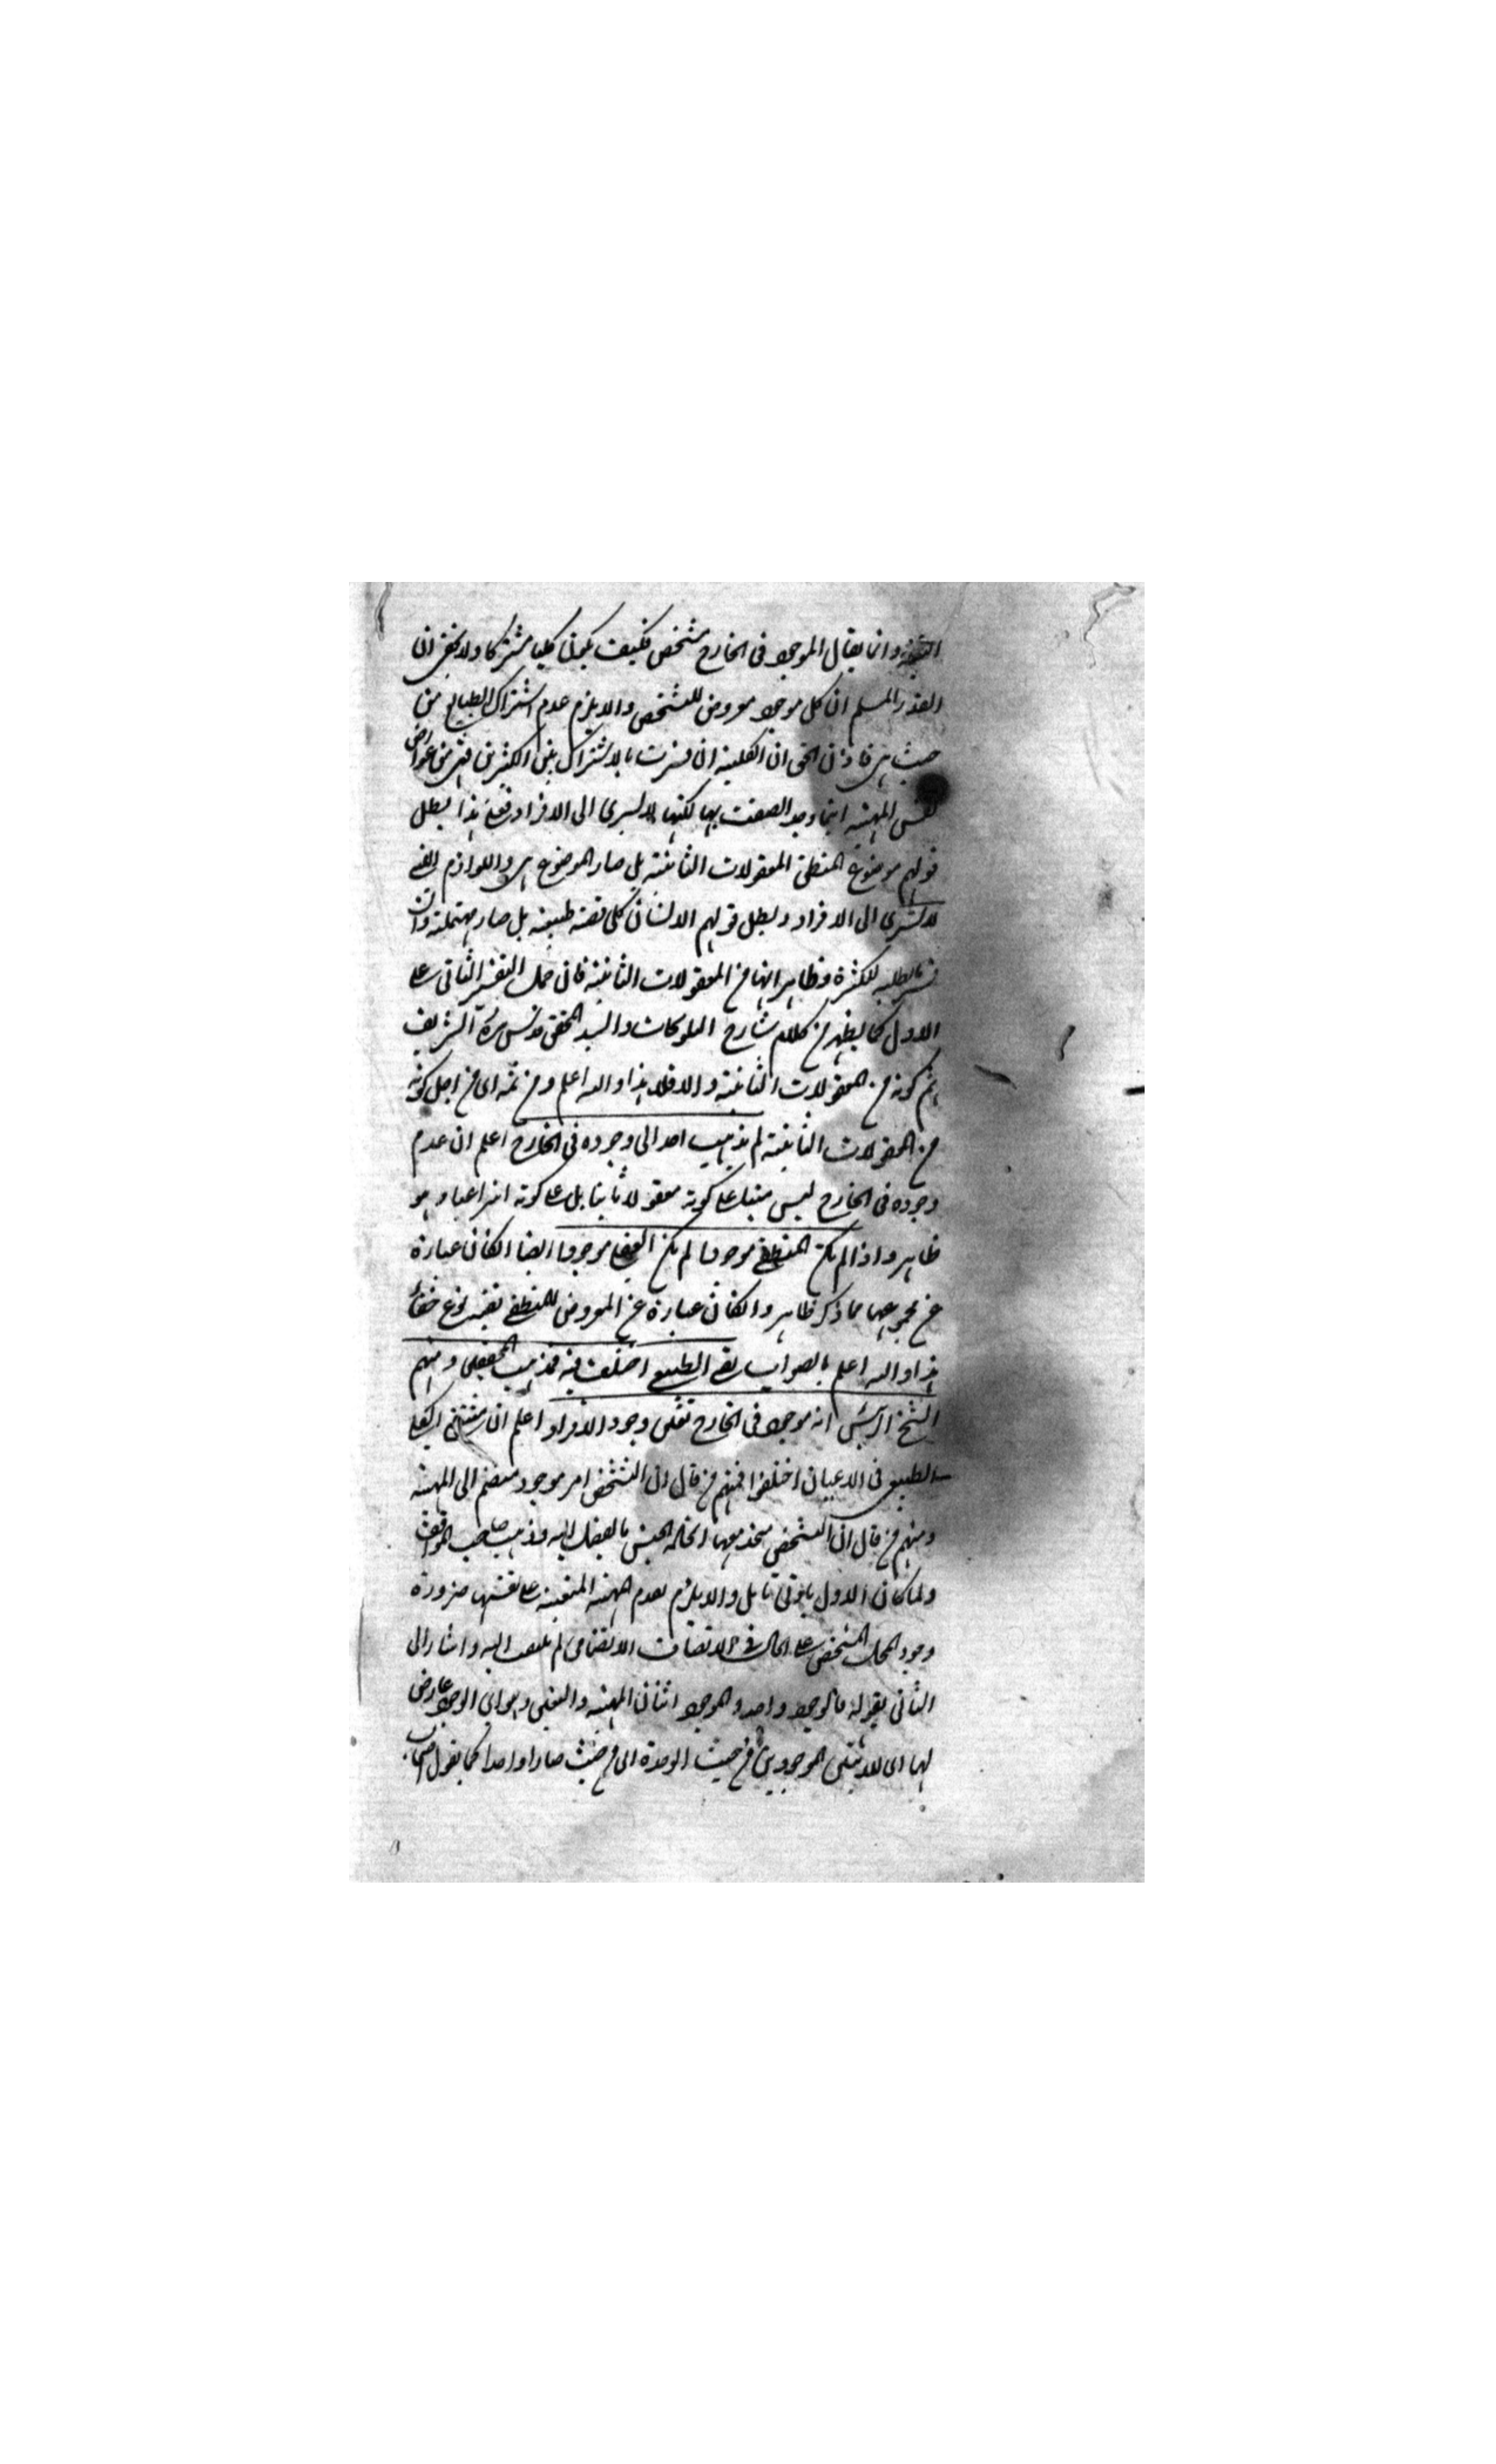 وانا يقال الموجود فى الخارج متشخص فكيف يكون كليا مشتركا ولا يخفى ان
القدر المسلم ان كل موجود معروض للتشخص والا يلزم عدم اشتراك الطبايع من
حيث هى فاذن الحق ان الكلية ان فسرت بالاشتراك بين الكثيرين فهى من عوارض
نفس المهية اينما وجد اتصفت بها لكنها لا تسرى الى الافراد فعلى هذا بطل
قولهم موضوع المنطق المعقولات الثانية بل صار الموضوع هى واللوازم التى
لا تسرى الى الافراد وبطل قولهم الانسان كلى قضية طبيعية بل صار مهملة وان
فسر للكثرة فظاهر انها من المعقولات الثانية فان حمل التفسير الثانى على
الاول كما يظهر من كلام شارح والسيد المحقق قدس سره الشريف
يتم كونه من المعقولات الثانية والا فلا هذا والله اعلم ومن ثمه اى من اجل كونه
من المعقولات الثانية لم يذهب احد الى وجوده فى الخارج اعلم ان عدم
وجوده فى الخارج ليس مبنيا على كونه معقولا ثانيا بل على كونه انتزاعيا وهو
ظاهر واذا لم يكن المنطقى موجودا لم يكن العقلى موجودا ايضا ان كان عبارة
عن مجموعهما مما ذكر ظاهر وان كان عبارة عن المعروض للمنطقى ففيه نوع خفاء
هذا والله اعلم بالصواب بقى الطبيعى اختلف فيه فمذهب المحققين ومنهم
الشيخ الرئيس انه موجود فى الخارج بعين وجود الافراد اعلم ان مثبتى الكلى
الطبيعى فى الاعيان اختلفوا فمنهم من قال ان التشخص امر موجود منضم الى المهية
ومنهم من قال ان التشخص متحد معها اتحاد الجنس بالفصل واليه ذهب صاحب المواقف
ولما كان الاول والا يلزم تقدم المهية المتعينة على نفسها ضرورة
وجود المحل المتشخص على الحال فى الاتصاف الانضمامى لم يلتفت اليه واشار الى
الثانى بقوله فالوجود واحد والموجود اثنان المهية والتعين وهو اى الوجود عارض
لها اى للاثنين الموجودين من حيث الوحدة اى من حيث صارا واحدا كما يقول